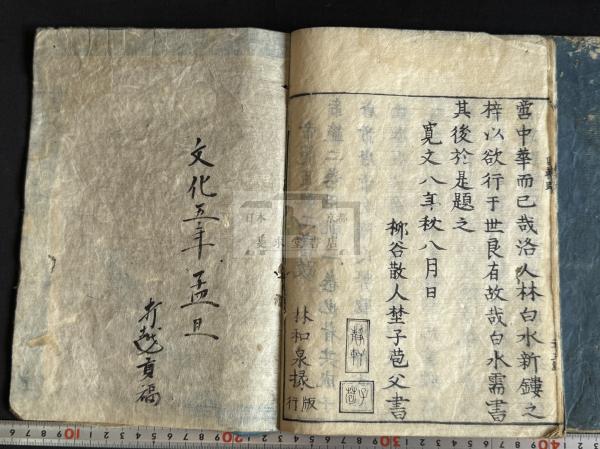 啻中華而已哉洛人林白水新鏤之
梓以欲行于世良有故哉白水需書
其後於是題之
寛文八年秋八月日
柳谷散人埜子苞父書
静軒
子苞
林和泉掾
版行
文化五年孟旦
日本
京都
10
20
30
40